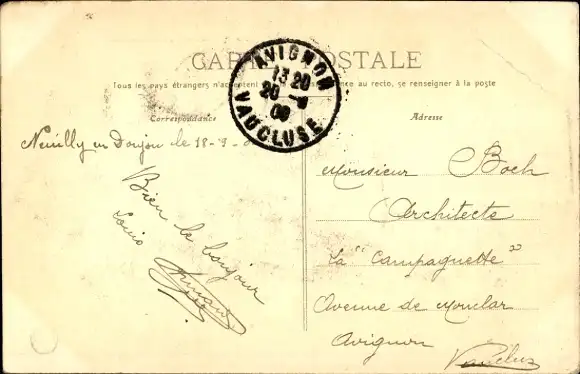 CARTE POSTALE
Tous les pays étrangers n'acceptent au recto, se renseigner à la poste
Correspondance
Adresse
AVIGNON
13 20
20 -
VAUCLUSE
Neuilly en Donjon le 18-
Bien le bonjour
Louis
Monsieur Boch
Architecte
La "Campagnette"
Avenue de Monclar
Avignon
Vaucluse